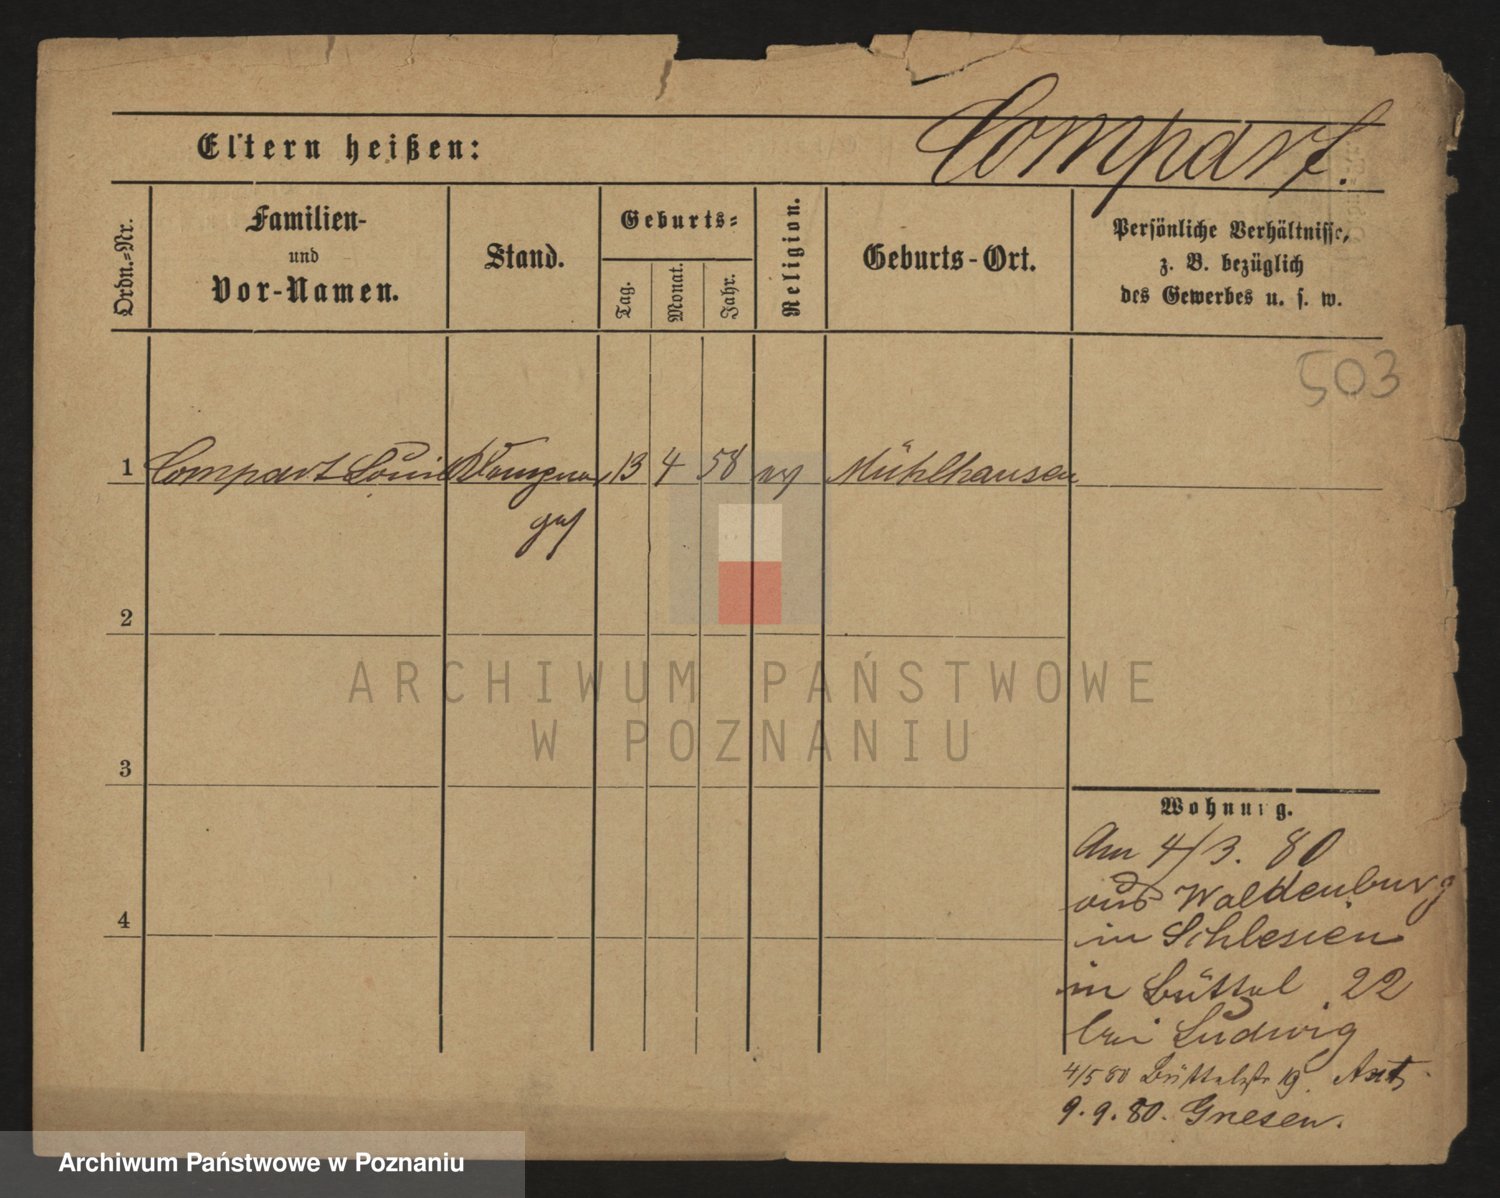 Compart.
Eltern heißen:
Ordn.-Nr.
Familien-
und
Vor-Namen.
Stand.
Geburts-
Tag.
Monat.
Jahr.
Religion.
Geburts-Ort.
Persönliche Verhältnisse,
z. B. bezüglich
des Gewerbes u. s. w.
503
1 Compart Louis 13 4 58 Mühlhausen
2
3
4
ARCHIWUM PAŃSTWOWE
W POZNANIU
Wohnung.
Am 4/3. 80
aus Waldenburg
in Schlesien
in Büttel 22
bei Ludwig
4/5 80 Büttelstr 19.
9.9.80. Gnesen.
Archiwum Państwowe w Poznaniu